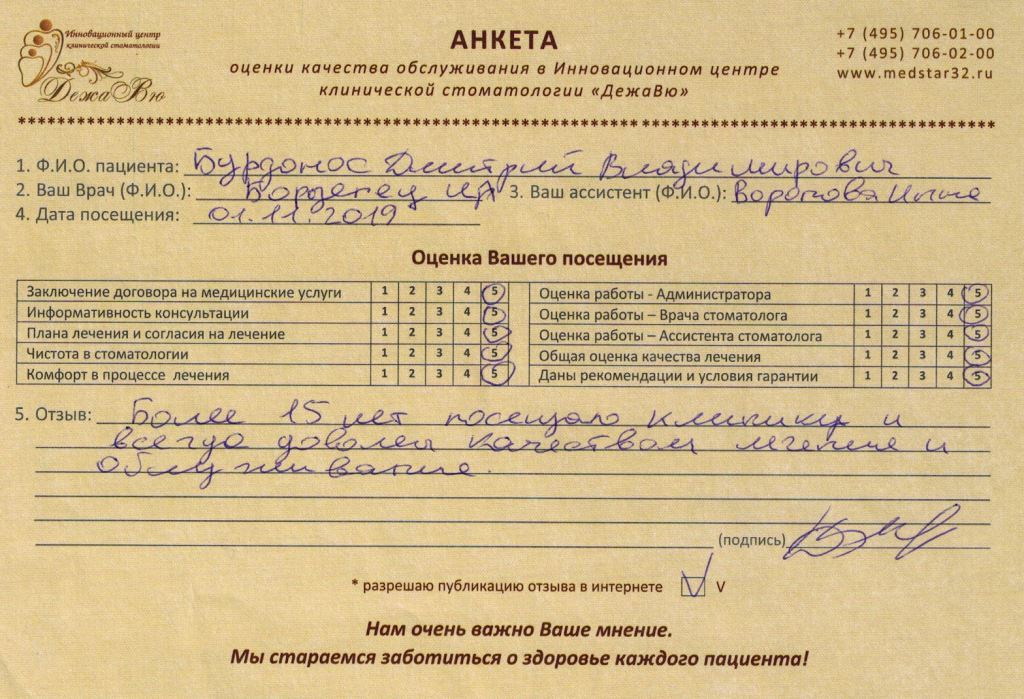 Инновационный центр
клинической стоматологии
ДежаВю
АНКЕТА
оценки качества обслуживания в Инновационном центре
клинической стоматологии «ДежаВю»
+7 (495) 706-01-00
+7 (495) 706-02-00
www.medstar32.ru
************************************************************
1. Ф.И.О. пациента: Бурдонос Дмитрий Владимирович
2. Ваш Врач (Ф.И.О.): 3. Ваш ассистент (Ф.И.О.):
4. Дата посещения: 01.11.2019
Оценка Вашего посещения
Заключение договора на медицинские услуги 1 2 3 4 5
Информативность консультации 1 2 3 4 5
Плана лечения и согласия на лечение 1 2 3 4 5
Чистота в стоматологии 1 2 3 4 5
Комфорт в процессе лечения 1 2 3 4 5
Оценка работы - Администратора 1 2 3 4 5
Оценка работы – Врача стоматолога 1 2 3 4 5
Оценка работы – Ассистента стоматолога 1 2 3 4 5
Общая оценка качества лечения 1 2 3 4 5
Даны рекомендации и условия гарантии 1 2 3 4 5
5. Отзыв: Более 15 лет посещаю клинику и
всегда доволен качеством лечения и
обслуживание.
(подпись)
* разрешаю публикацию отзыва в интернете V
Нам очень важно Ваше мнение.
Мы стараемся заботиться о здоровье каждого пациента!